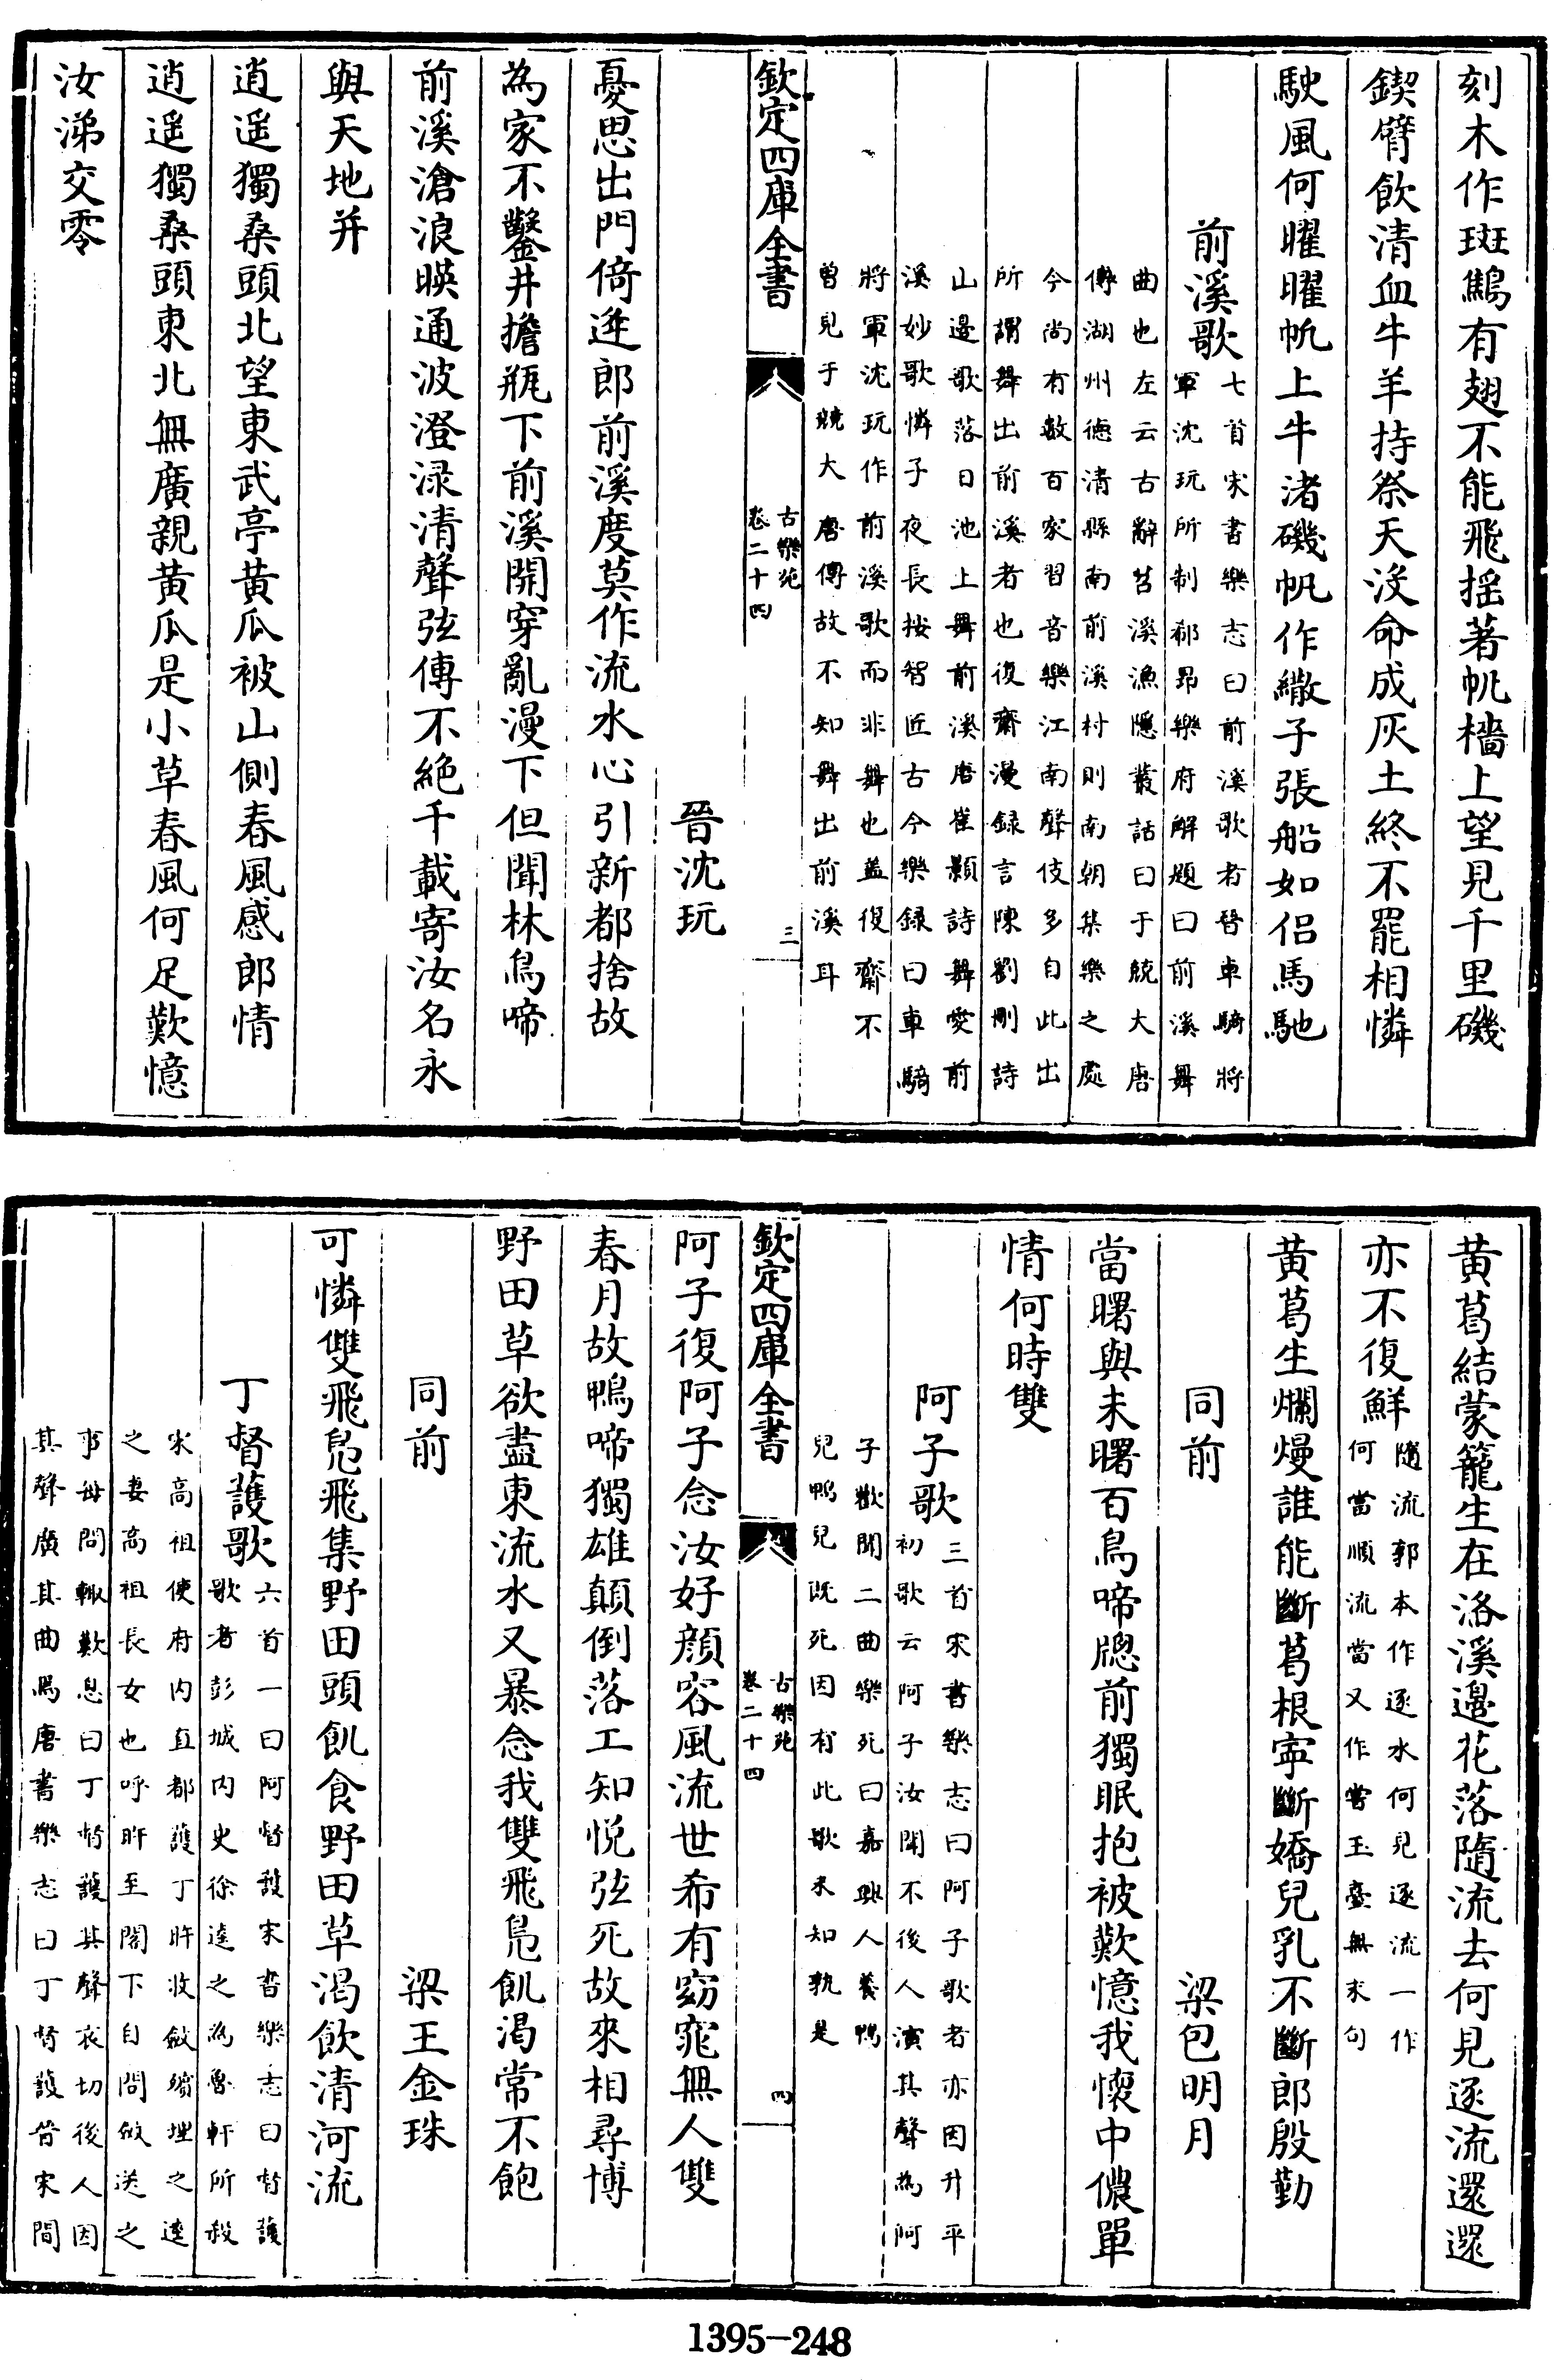 刻木作斑鷦有翅不能飛摇著帆檣上望見千里磯
鍥臂飲清血牛羊持祭天没命成灰土終不罷相憐
駛風何曜曜帆上牛渚磯帆作繖子張船如侣馬馳
前溪歌
七首宋書樂志曰前溪歌者晉車騎將
軍沈玩所制郗昂樂府解題曰前溪舞
曲也左云古辭苕溪漁隱叢話曰于兢大唐
傳湖州德清縣南前溪村則南朝集樂之處
今尚有數百家習音樂江南聲伎多自此出
所謂舞出前溪者也復齋漫録言陳劉刪詩
山邊歌落日池上舞前溪唐崔顥詩舞愛前
溪妙歌憐子夜長按智匠古今樂録曰車騎
將軍沈玩作前溪歌而非舞也盖復齋不
曽見于兢大唐傳故不知舞出前溪耳
欽定四庫全書
古樂苑
卷二十四
三
晉沈玩
憂思出門倚逢郎前溪度莫作流水心引新都捨故
為家不鑿井擔瓶下前溪開穿亂漫下但聞林鳥啼
前溪滄浪暎通波澄渌清聲弦傳不絶千載寄汝名永
與天地并
逍遥獨桑頭北望東武亭黄瓜被山側春風感郎情
逍遥獨桑頭東北無廣親黄瓜是小草春風何足歎憶
汝涕交零
黄葛結蒙籠生在洛溪邊花落隨流去何見逐流還還
亦不復鮮
隨流郭本作逐水何見逐流一作
何當順流當又作嘗玉臺無末句
黄葛生爛熳誰能斷葛根寧斷嬌兒乳不斷郎殷勤
同前
梁包明月
當曙與未曙百鳥啼牕前獨眠抱被歎憶我懷中儂單
情何時雙
阿子歌
三首宋書樂志曰阿子歌者亦因升平
初歌云阿子汝聞不後人演其聲為阿
子歡聞二曲樂死曰嘉興人養鴨
兒鴨兒既死因有此歌未知孰是
欽定四庫全書
古樂苑
卷二十四
四
阿子復阿子念汝好顔容風流世希有窈窕無人雙
春月故鴨啼獨雄顛倒落工知悦弦死故來相尋博
野田草欲盡東流水又暴念我雙飛鳬飢渴常不飽
同前
梁王金珠
可憐雙飛鳬飛集野田頭飢食野田草渴飲清河流
丁督護歌
六首一曰阿督護宋書樂志曰督護
歌者彭城内史徐逵之為魯軒所殺
宋高祖使府内直都護丁旿收斂殯埋之逵
之妻高祖長女也呼旿至閤下自問斂送之
事每問輙歎息曰丁督護其聲哀切後人因
其聲廣其曲焉唐書樂志曰丁督護晉宋間
1395-248